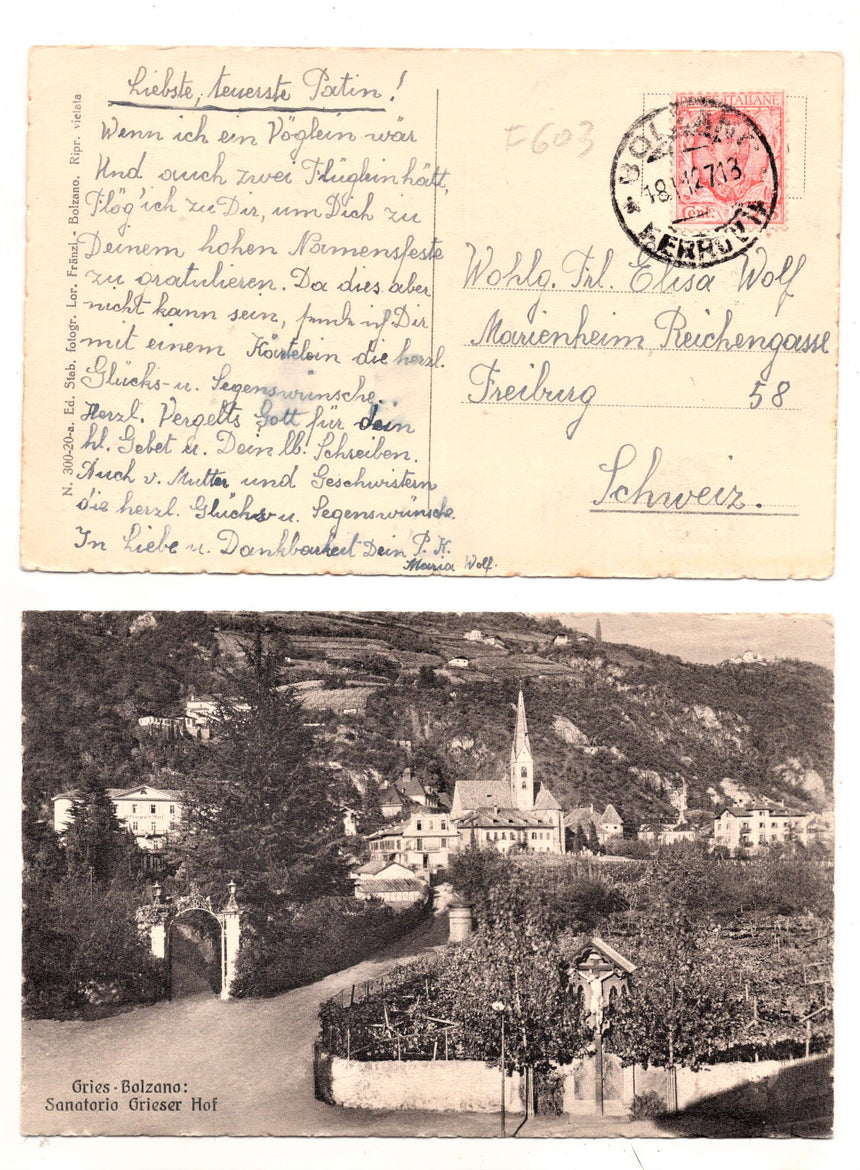 Liebste, teuerste Patin!
Wenn ich ein Vöglein wär
Und auch zwei Flüglein hätt,
Flög' ich zu Dir, um Dich zu
Deinem hohen Namensfeste
zu gratulieren. Da dies aber
nicht kann sein, sende ich Dir
mit einem Kärtelein die herzl.
Glücks- u. Segenswünsche.
Herzl. Vergelts Gott für dein
hl. Gebet u. Dein lb. Schreiben.
Auch v. Mutter und Geschwistern
die herzl. Glücks u. Segenswünsche.
In Liebe u. Dankbarkeit Dein P. K.
Maria Wolf.
N. 300-20-a. Ed. Stab. fotogr. Lor. Fränzl - Bolzano. Ripr. vietata
F603
POSTE ITALIANE
BOLZANO
FERROVIA
Wohlg. Frl. Elisa Wolf
Marienheim Reichengasse
Freiburg 58
Schweiz.
Grieser Hof
Gries-Bolzano:
Sanatorio Grieser Hof